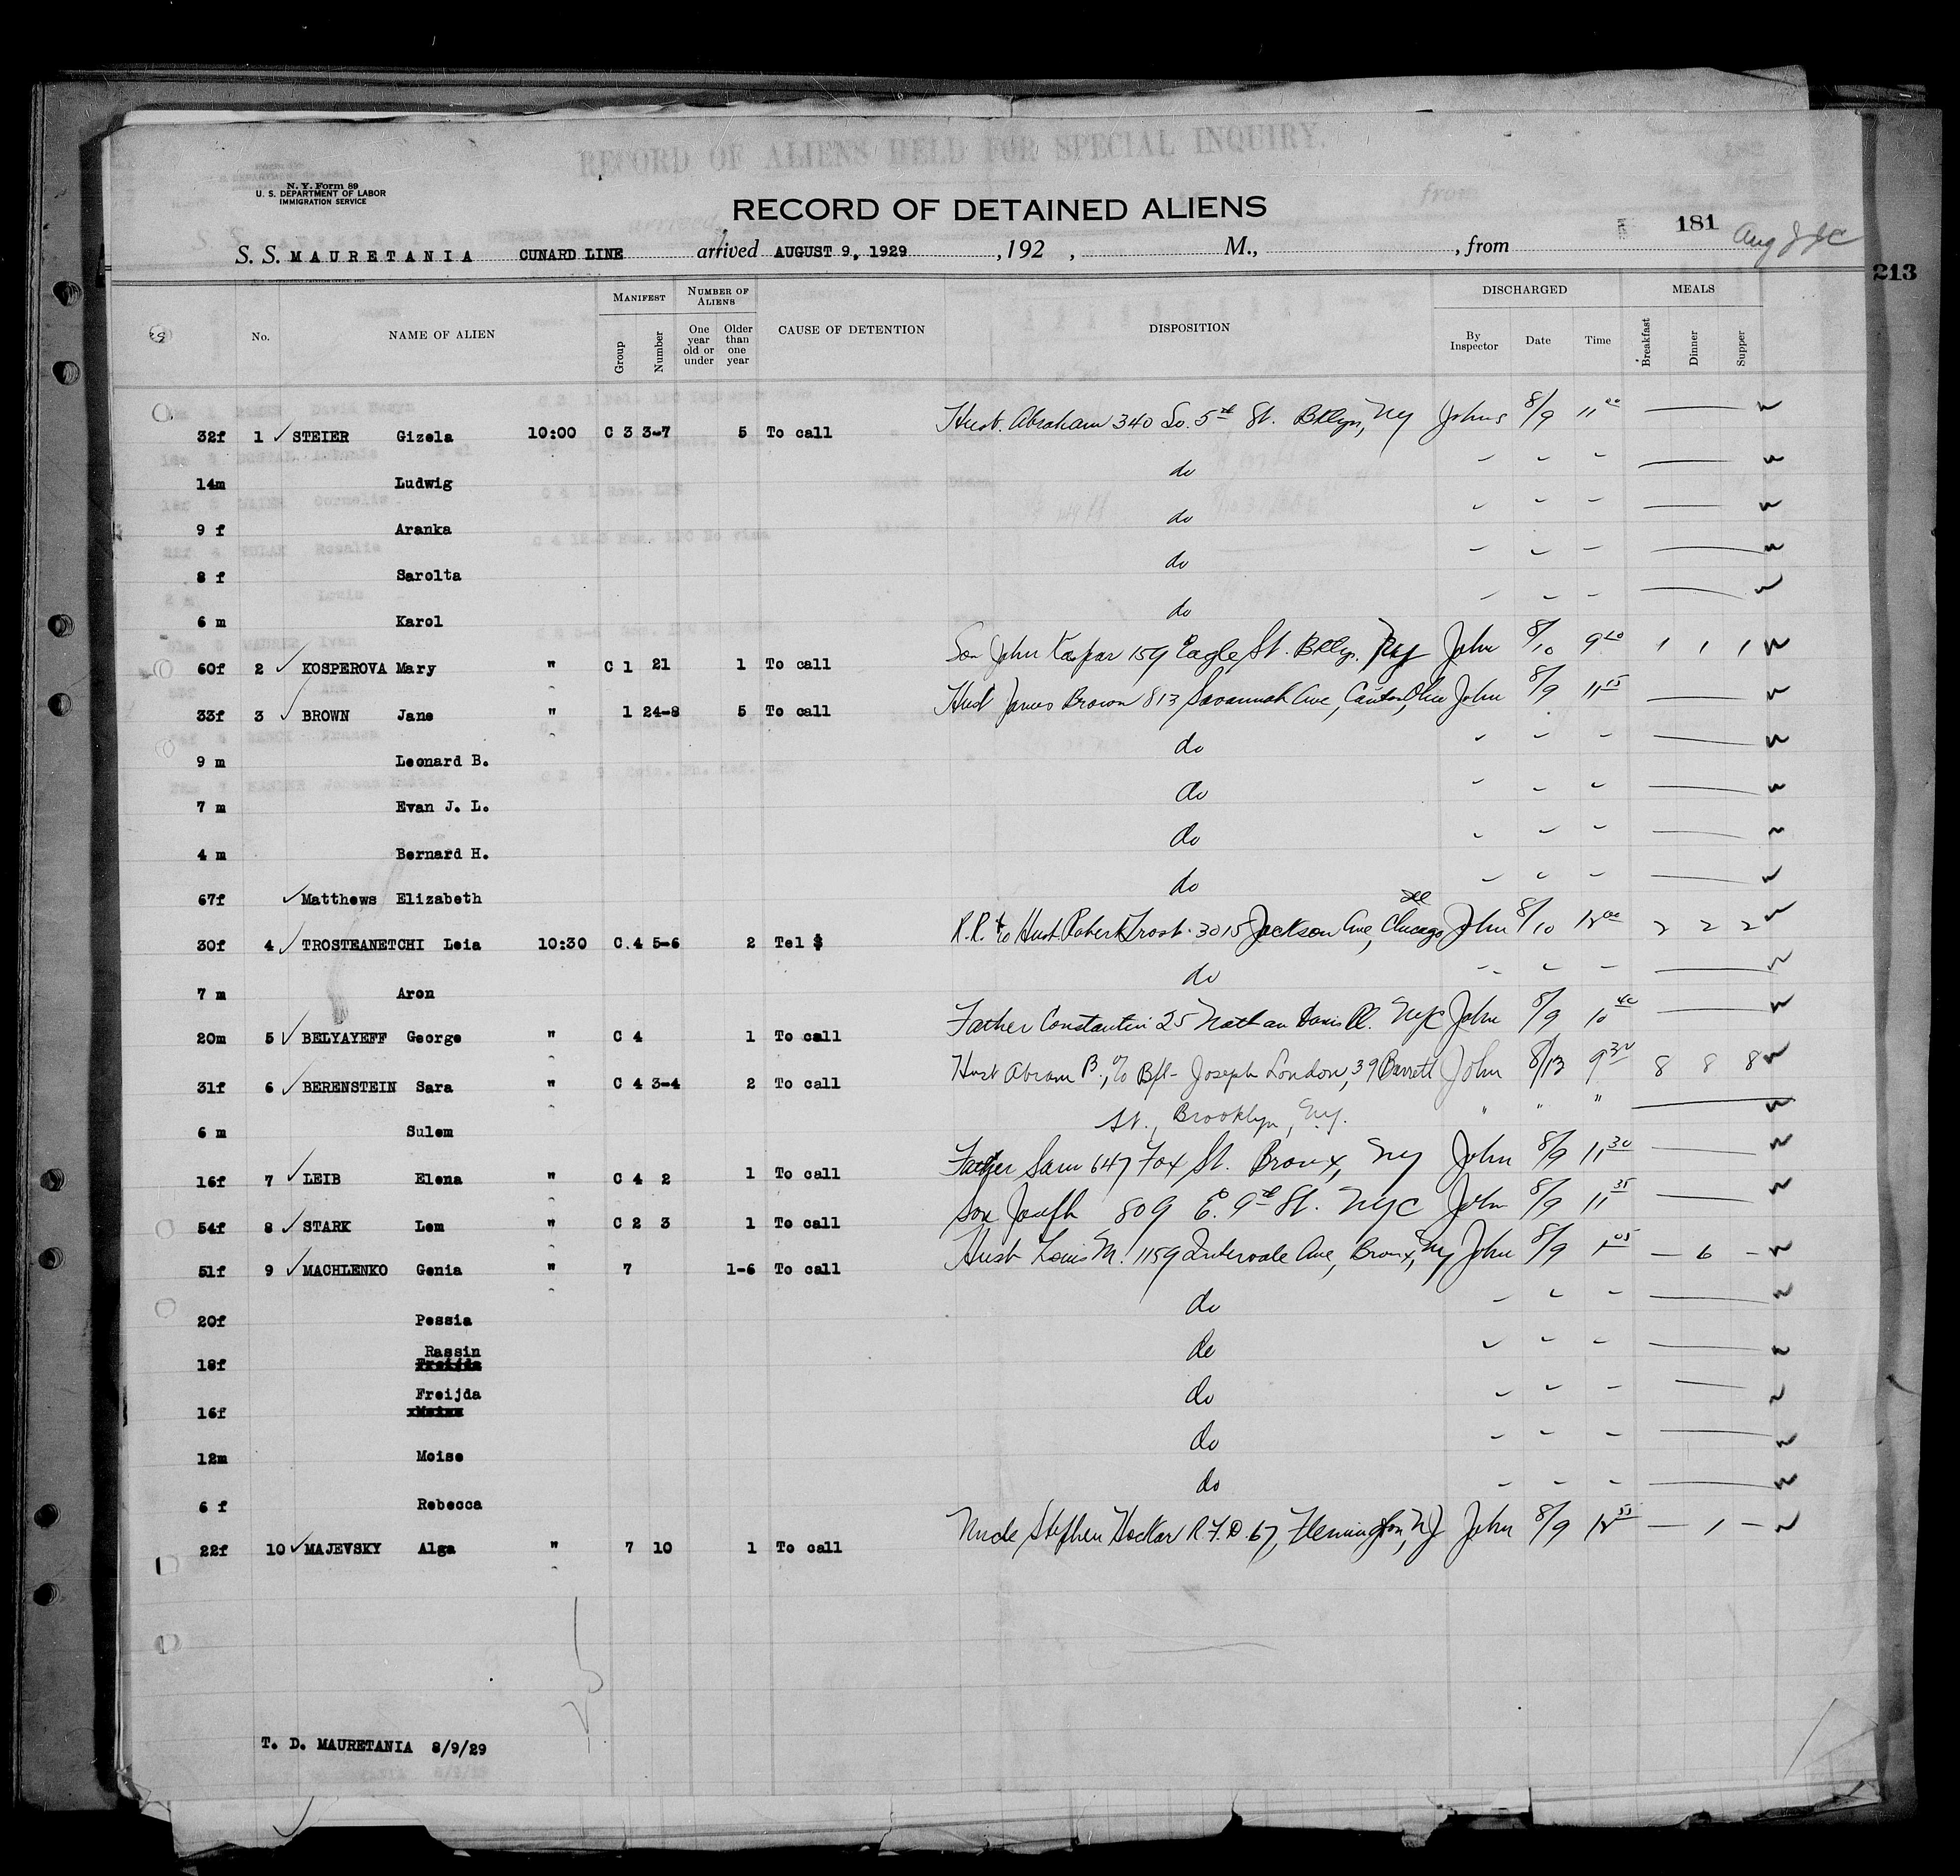 RECORD OF ALIENS HELD FOR SPECIAL INQUIRY.
N. Y. Form 89
U. S. DEPARTMENT OF LABOR
IMMIGRATION SERVICE
RECORD OF DETAINED ALIENS
181
213
S. S. MAURETANIA CUNARD LINE arrived AUGUST 9, 1929 , 192 , M., , from
No. NAME OF ALIEN MANIFEST Group Number NUMBER OF ALIENS One year old or under Older than one year CAUSE OF DETENTION DISPOSITION DISCHARGED By Inspector Date Time MEALS Breakfast Dinner Supper
32f 1 ✓ STEIER Gizela 10:00 C 3 3-7 5 To call Husb. Abraham 340 So. 5th St. Bklyn, NY Johns 8/9 11 00
14m Ludwig do
9 f Aranka do
8 f Sarolta do
6 m Karol do
60f 2 ✓ KOSPEROVA Mary " C 1 21 1 To call Son John Kaspar 159 Eagle St. Bklyn. NY John 8/10 9 1 1 1
33f 3 ✓ BROWN Jane " 1 24-8 5 To call Husb James Brown 813 Savannah Ave, Canton, Ohio John 8/9 11 15
9 m Leonard B. do
7 m Evan J. L. do
4 m Bernard H. do
67f ✓ Matthews Elizabeth do
30f 4 ✓ TROSTEANETCHI Leia 10:30 C.4 5-6 2 Tel $ R.R. to Husb Robert Trost. 3015 Jackson Ave, Chicago Ill John 8/10 12 00 2 2 2
7 m Aron do
20m 5 ✓ BELYAYEFF George " C 4 1 To call Father Constantin 25 Nathan Davis Pl. NYC John 8/9 10 40
31f 6 ✓ BERENSTEIN Sara " C 4 3-4 2 To call Husb Abram B., c/o Joseph London, 39 Barrett John 8/13 9 30 8 8 8
6 m Sulem St., Brooklyn, N.Y. " " "
16f 7 ✓ LEIB Elena " C 4 2 1 To call Father Sam 647 Fox St. Bronx, NY John 8/9 11 30
54f 8 ✓ STARK Lem " C 2 3 1 To call Son Joseph 809 E. 9th St. NYC John 8/9 11 35
51f 9 ✓ MACHLENKO Genia " 7 1-6 To call Husb Louis M. 1159 Intervale Ave, Bronx, NY John 8/9 1 05 — 6 —
20f Pessia do
18f Rassin do
16f Freijda do
12m Moise do
6 f Rebecca do
22f 10 ✓ MAJEVSKY Alga " 7 10 1 To call Uncle Stephen R.F.D. 67, Flemington, NJ John 8/9 12 55 — 1 —
T. D. MAURETANIA 8/9/29